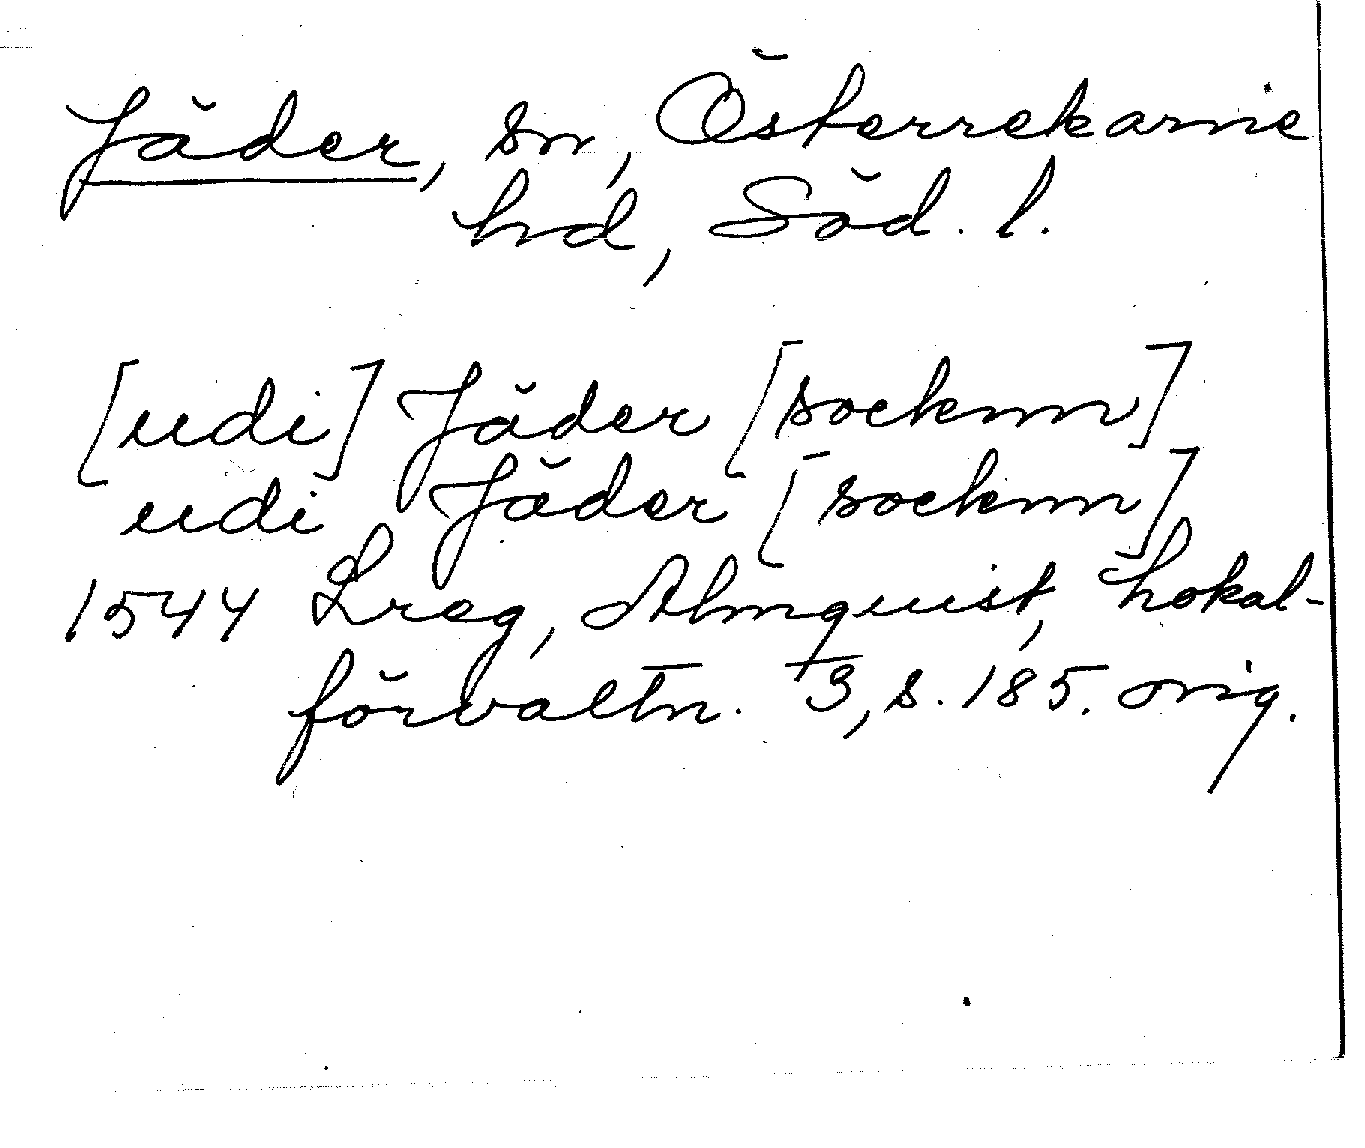 Jäder, sn, Österrekarne
hd, Söd. l.
[udi] Jäder [socknn]
udi Jäder [socknn]
1544 Lreg, Almquist, Lokal-
förvaltn. 3, s. 185. orig.